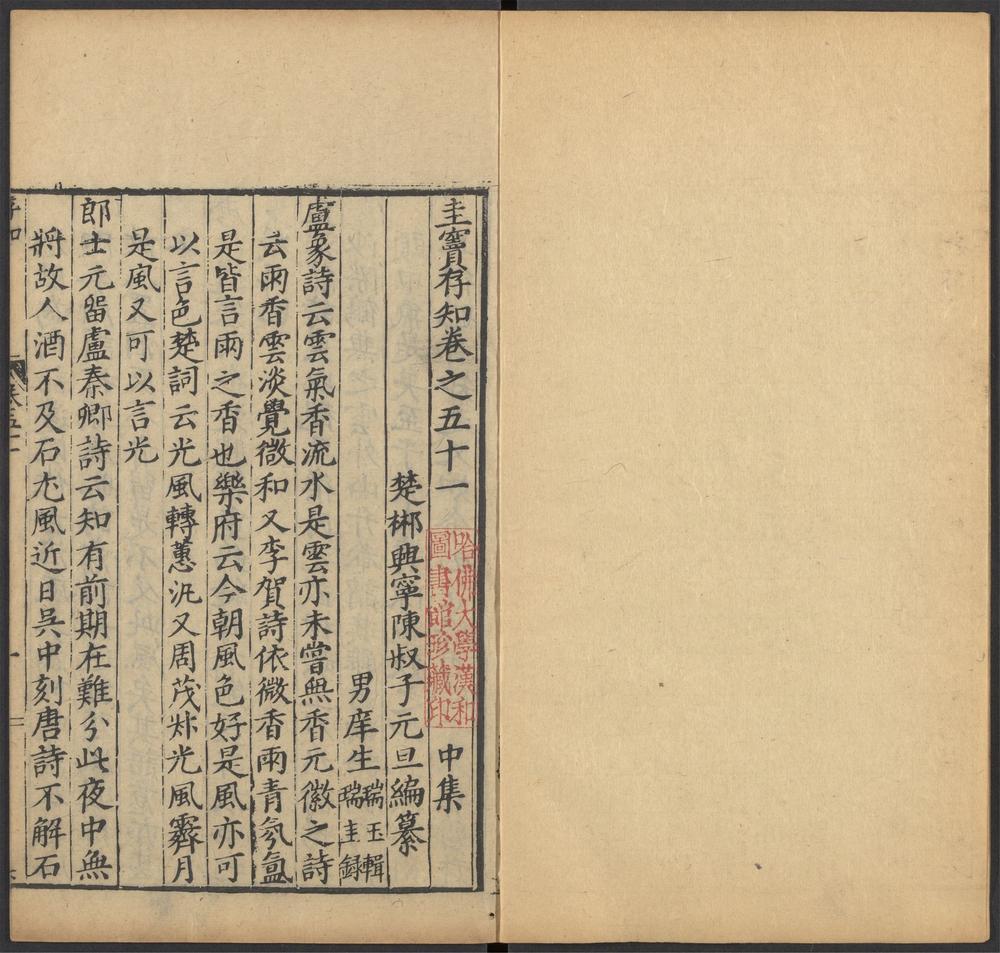 圭竇存知卷之五十一　中集
楚郴興寧陳叔子元旦編纂
男庠生瑞玉輯
瑞圭錄
盧象詩云雲氣香流水是雲亦未嘗無香元徽之詩
云雨香雲淡覺微和又李賀詩依微香雨青氛氳
是皆言雨之香也樂府云今朝風色好是風亦可
以言色楚詞云光風轉蕙汎又周茂叔光風霽月
是風又可以言光
郎士元留盧秦卿詩云知有前期在難分此夜中無
將故人酒不及石尤風近日吳中刻唐詩不解石
存知
卷五十一
一
哈佛大學漢和
圖書館珍藏印